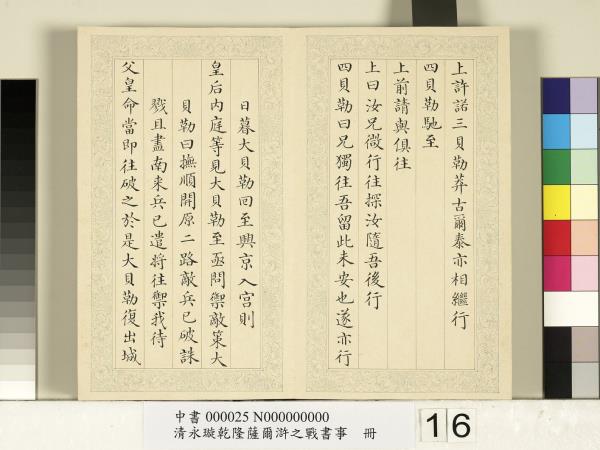 上許諾三貝勒莽古爾泰亦相繼行
四貝勒馳至
上前請與俱往
上曰汝兄微行往探汝隨吾後行
四貝勒曰兄獨往吾留此未安也遂亦行
日暮大貝勒回至興京入宮則
皇后內庭等見大貝勒至亟問禦敵策大
貝勒曰撫順開原二路敵兵已破誅
戮且盡南來兵已遣將往禦我待
父皇命當即往破之於是大貝勒復出城
中書 000025 N000000000
清永璇乾隆薩爾滸之戰書事 冊
16